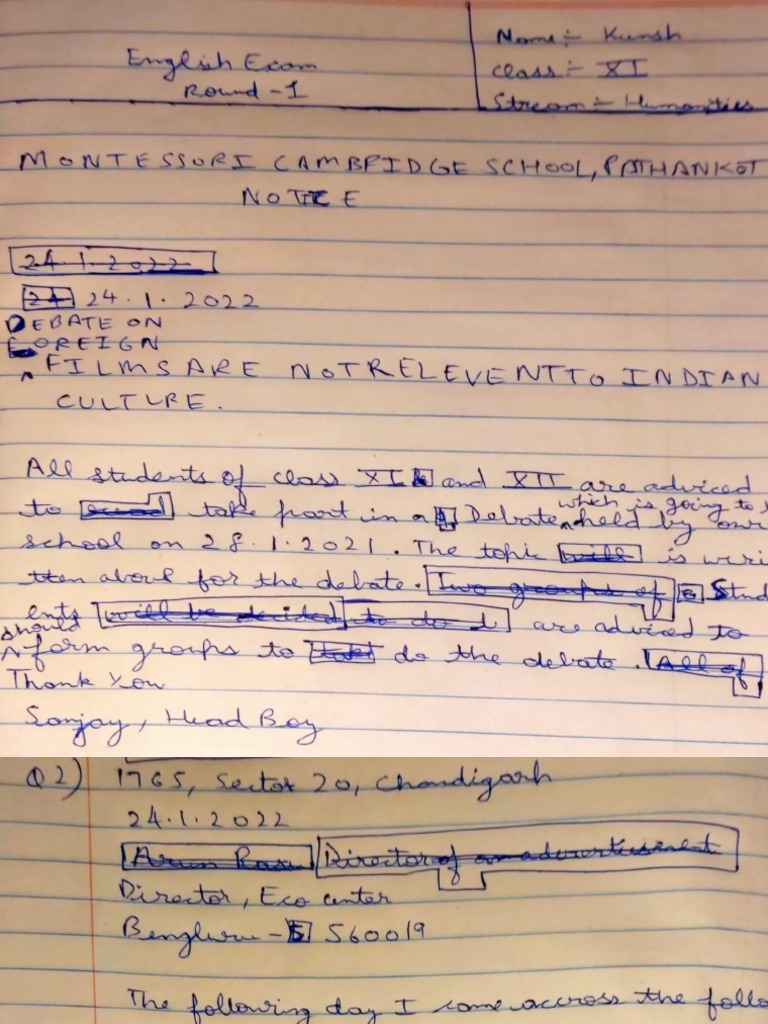 English Exam
Round - 1
Name :- Kunsh
Class :- XI
Stream :- Humanities
MONTESSORI CAMBRIDGE SCHOOL, PATHANKOT
NOTICE
24.1.2022
24 24.1.2022
DEBATE ON
FOREIGN
FILMS ARE NOT RELEVENT TO INDIAN
CULTURE.
All students of class XI and XII are adviced
to take part in a Debate which is going to held by our
school on 28.1.2021. The topic will is wri
tten above for the debate. Two groups of Stud
ents will be decided to do are adviced to
should form groups to do the debate. All of
Thank You
Sanjay, Head Boy
Q2) 1765, Sector 20, Chandigarh
24.1.2022
Arun Director of an advertisement
Director, Eco center
Bengluru - 560019
The following day I come accross the follo